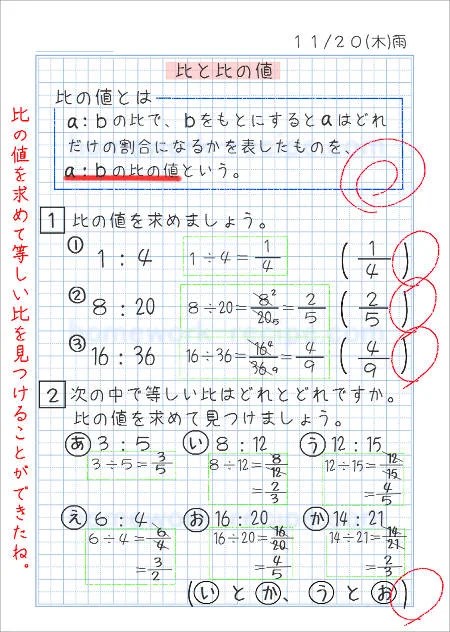 11/20(木)雨
比と比の値
比の値とは
a:bの比で、bをもとにするとaはどれ
だけの割合になるかを表したものを、
a:bの比の値という。
比の値を求めて等しい比を見つけることができたね。
1 比の値を求めましょう。
① 1:4 1÷4=1/4 (1/4)
② 8:20 8÷20=8²/20₅=2/5 (2/5)
③ 16:36 16÷36=16⁴/36₉=4/9 (4/9)
2 次の中で等しい比はどれとどれですか。
比の値を求めて見つけましょう。
あ 3:5 い 8:12 う 12:15
3÷5=3/5 8÷12=8/12 12÷15=12/15
=2/3 =4/5
え 6:4 お 16:20 か 14:21
6÷4=6/4 16÷20=16/20 14÷21=14/21
=3/2 =4/5 =2/3
(い と か、う と お)